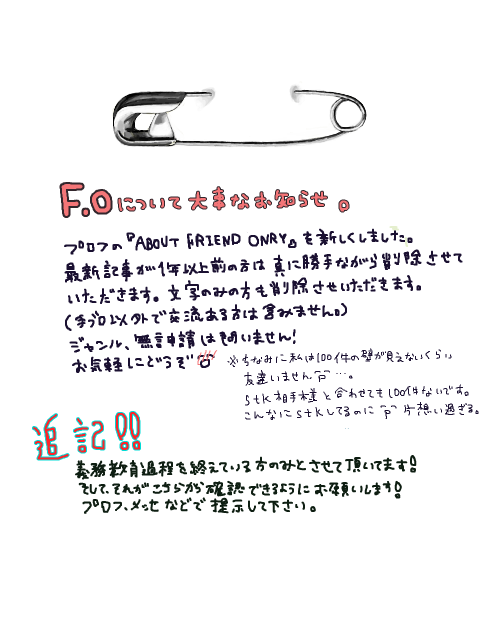 F.Oについて大事なお知らせ。
プロフの『ABOUT FRIEND ONRY』を新しくしました。
最新記事が1年以上前の方は真に勝手ながら削除させて
いただきます。文字のみの方も削除させていただきます。
(手ブロ以外で交流ある方は含みません。)
ジャンル、無言申請は問いません!
お気軽にどうぞ
※ちなみに私は100件の壁が見えないくらい
友達いません^p^…。
stk相手様と合わせても100件ないです。
こんなにstkしてるのに^p^片想い過ぎる。
追記!!
義務教育過程を終えている方のみとさせて頂いてます!
そして、それがこちらから確認できるようにお願いします!
プロフ、メッセなどで提示して下さい。